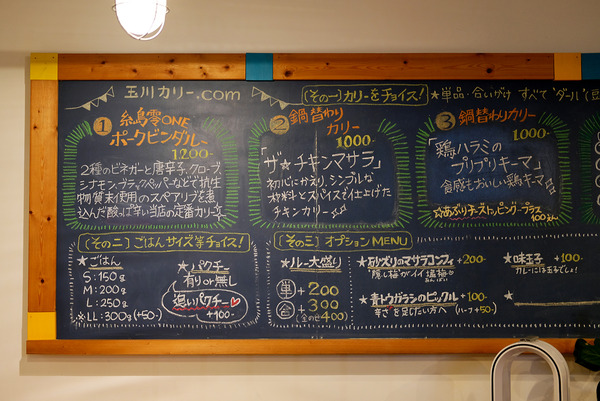 玉川カリー.com
〔その一〕カリーをチョイス!
★単品・合いがけ すべて"ダール"(豆
① 糸島雫ONE
ポークビンダルー
1200-
2種のビネガーと唐辛子、クローブ
シナモン、ブラックペッパーなどで抗生
物質未使用のスペアリブを煮
込んだ酸っぱ辛い当店の定番カリー
② 鍋替わり
カリー
1000-
「ザ★チキンマサラ」
初心にかえり、シンプルな
材料とスパイスで仕上げた
チキンカリー
③ 鍋替わりカリー
1000-
「鶏ハラミの
プリプリキーマ」
食感もおいしい鶏キーマ
☆あぶりチーズトッピングプラス
100えん
〔その二〕ごはんサイズ&チョイス!
★ごはん
S:150g
M:200g
L:250g
※LL:300g(+50-)
★パクチー
有り or 無し
追いパクチー
+100-
〔その三〕オプションMENU
★ルー大盛り
単+200
合+300
(全のせ400)
★砂ズリのマサラコンフィ +200-
隠し梅がイイ塩梅
★青トウガラシのピックル +100-
辛さを足したい方へ (ハーフ+50-)
★味玉子 +100-
カレーには玉子でしょ!
★